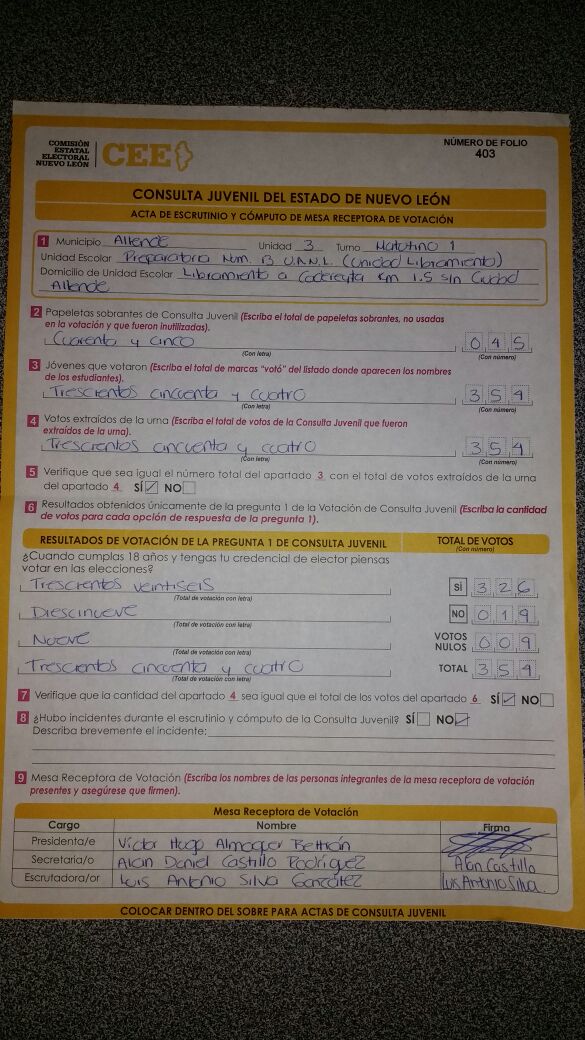 COMISIÓN
ESTATAL
ELECTORAL
NUEVO LEÓN
CEE
NÚMERO DE FOLIO
403
CONSULTA JUVENIL DEL ESTADO DE NUEVO LEÓN
ACTA DE ESCRUTINIO Y CÓMPUTO DE MESA RECEPTORA DE VOTACIÓN
1 Municipio Allende Unidad 3 Turno Matutino 1
Unidad Escolar Preparatoria Num. 13 U.A.N.L. (Unidad Libramiento)
Domicilio de Unidad Escolar Libramiento a Cadereyta Km 1.5 sin Ciudad
Allende
2 Papeletas sobrantes de Consulta Juvenil (Escriba el total de papeletas sobrantes, no usadas
en la votación y que fueron inutilizadas).
Cuarenta y cinco 045
(Con letra) (Con número)
3 Jóvenes que votaron (Escriba el total de marcas "votó" del listado donde aparecen los nombres
de los estudiantes).
Trescientos cincuenta y cuatro 354
(Con letra) (Con número)
4 Votos extraídos de la urna (Escriba el total de votos de la Consulta Juvenil que fueron
extraídos de la urna).
Trescientos cincuenta y cuatro 354
(Con letra) (Con número)
5 Verifique que sea igual el número total del apartado 3 con el total de votos extraídos de la urna
del apartado 4 SÍ NO
6 Resultados obtenidos únicamente de la pregunta 1 de la Votación de Consulta Juvenil (Escriba la cantidad
de votos para cada opción de respuesta de la pregunta 1).
RESULTADOS DE VOTACIÓN DE LA PREGUNTA 1 DE CONSULTA JUVENIL TOTAL DE VOTOS
(Con número)
¿Cuando cumplas 18 años y tengas tu credencial de elector piensas
votar en las elecciones?
Trescientos veintiseis SÍ 326
(Total de votación con letra)
Diescinueve NO 019
(Total de votación con letra)
Nueve VOTOS NULOS 009
(Total de votación con letra)
Trescientos cincuenta y cuatro TOTAL 354
(Total de votación con letra)
7 Verifique que la cantidad del apartado 4 sea igual que el total de los votos del apartado 6 SÍ NO
8 ¿Hubo incidentes durante el escrutinio y cómputo de la Consulta Juvenil? SÍ NO
Describa brevemente el incidente:
9 Mesa Receptora de Votación (Escriba los nombres de las personas integrantes de la mesa receptora de votación
presentes y asegúrese que firmen).
Mesa Receptora de Votación
Cargo Nombre Firma
Presidenta/e Víctor Hugo Almaguer Beltrán
Secretaria/o Alan Daniel Castillo Rodríguez Alan Castillo
Escrutadora/or Luis Antonio Silva González Luis Antonio Silva
COLOCAR DENTRO DEL SOBRE PARA ACTAS DE CONSULTA JUVENIL